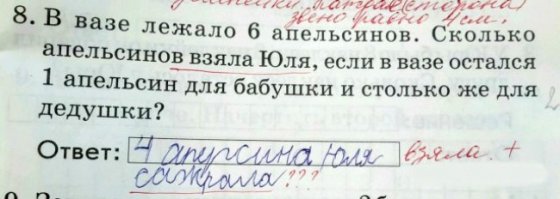 звено равно 4 см.
8. В вазе лежало 6 апельсинов. Сколько
апельсинов взяла Юля, если в вазе остался
1 апельсин для бабушки и столько же для
дедушки?
Ответ: 4 апурсина Юля взяла +
сажрала???